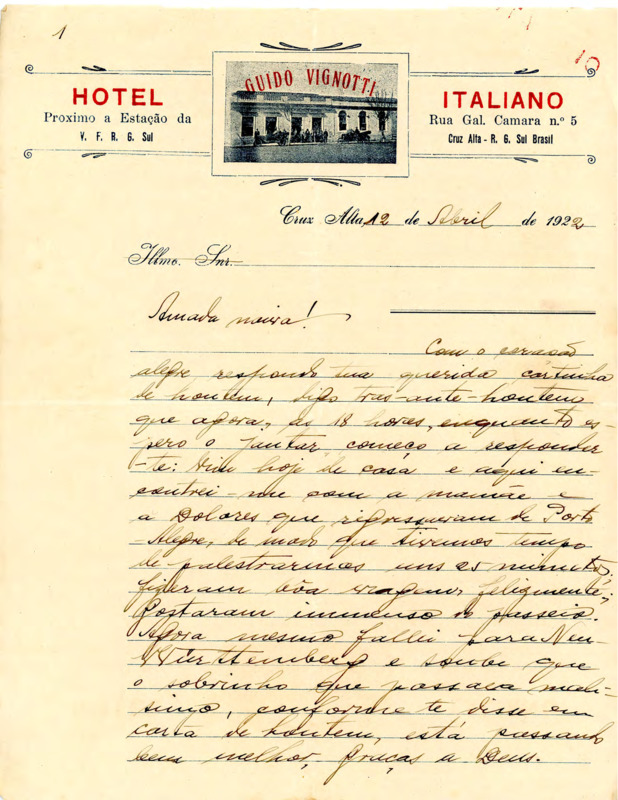 1
GUIDO VIGNOTTI
HOTEL
Proximo a Estação da
V. F. R. G. Sul
ITALIANO
Rua Gal. Camara n.º 5
Cruz Alta - R. G. Sul Brasil
Cruz Alta, 12 de Abril de 1922
Illmo. Snr.
Amada noiva!
Com o coração
alegre respondo tua querida cartinha
de hontem, digo tras-ante-hontem
que agora, ás 18 horas, enquanto es-
pero o jantar começo a responder
-te: Vim hoje de casa e aqui en-
contrei-me com a mamãe e
a Dolores que regressaram de Porto
Alegre, de modo que tivemos tempo
de palestrarmos uns 25 minutos,
fizeram bôa viagem, felizmente,
Gostaram immenso do passeio.
Agora mesmo fallei para Neu
Württemberg e soube que
o sobrinho que passava mali-
simo, conforme te disse em
carta de hontem, está passando
bem melhor, graças a Deus.